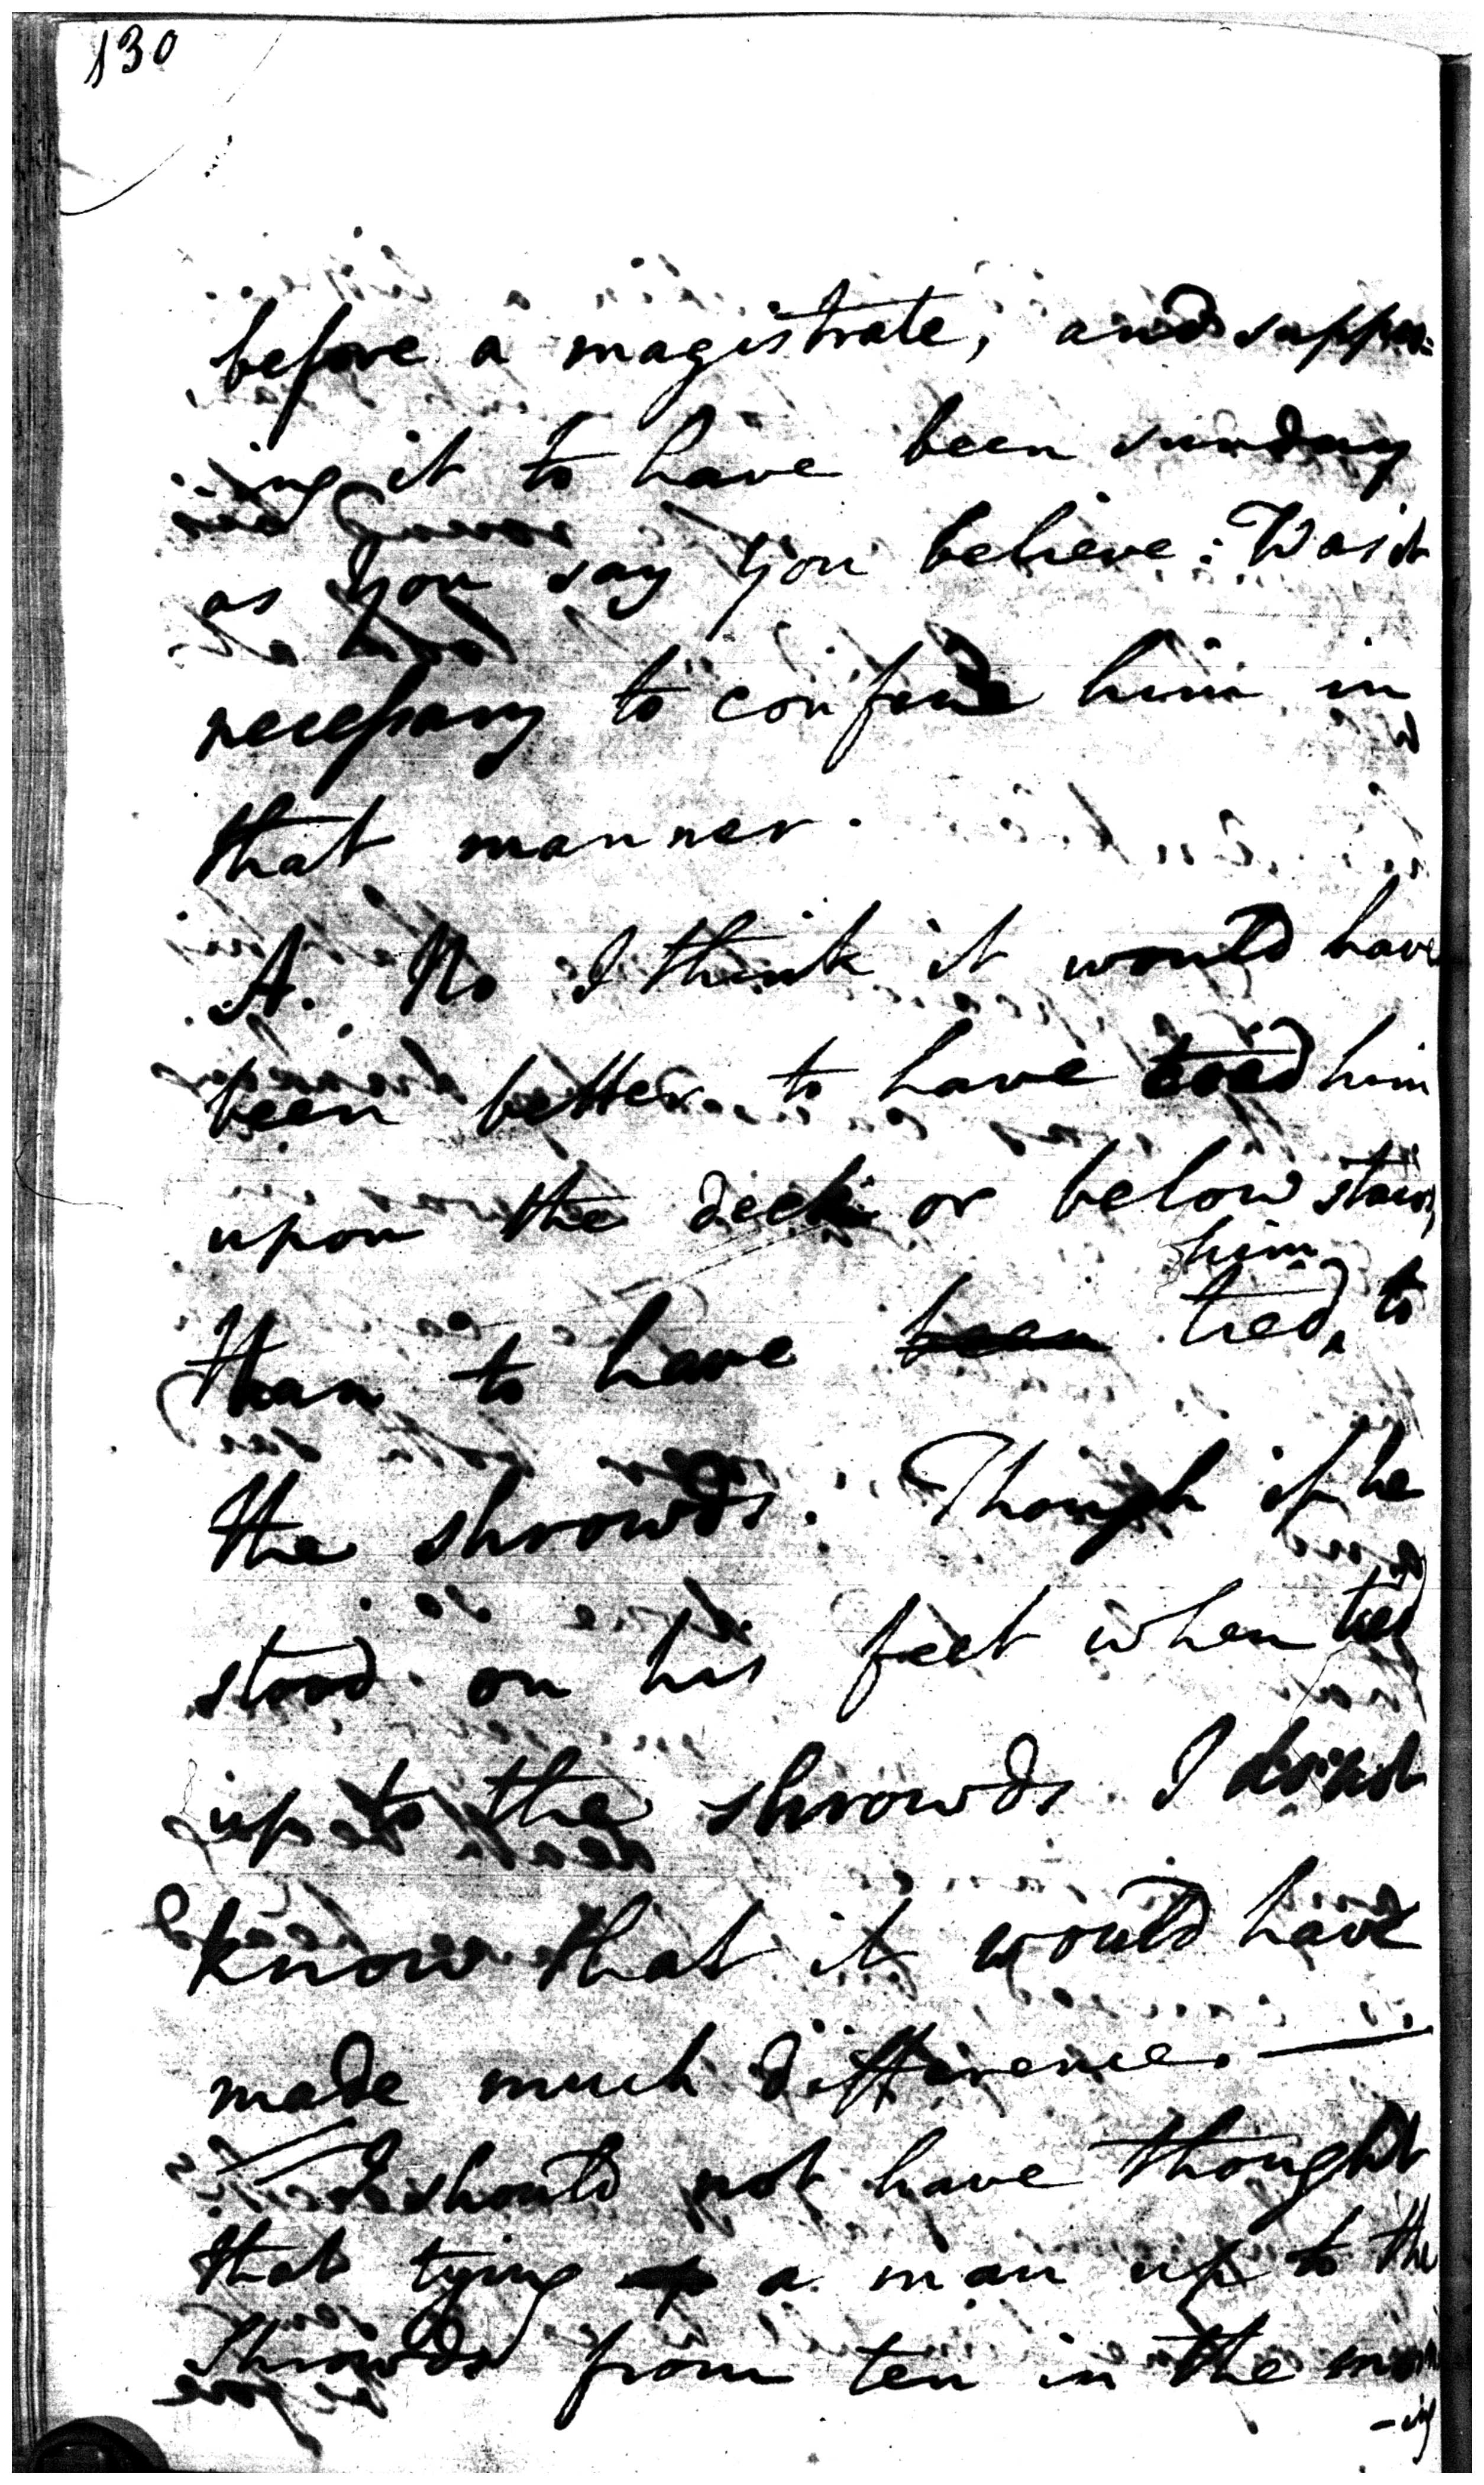 130
before a magistrate, and suppos=
ing it to have been sunday
as you say you believe: Was it
necessary to confine him in
that manner.
A. No I think it would have
been better to have tied him
upon the deck or below stairs,
him
than to have been tied to
the shrowds. Though if he
stood on his feet when tied
up to the shrowds I do not
know that it would have
made much difference.—
I should not have thought
that tying up a man up to the
Shrowds from ten in the morn
-ing